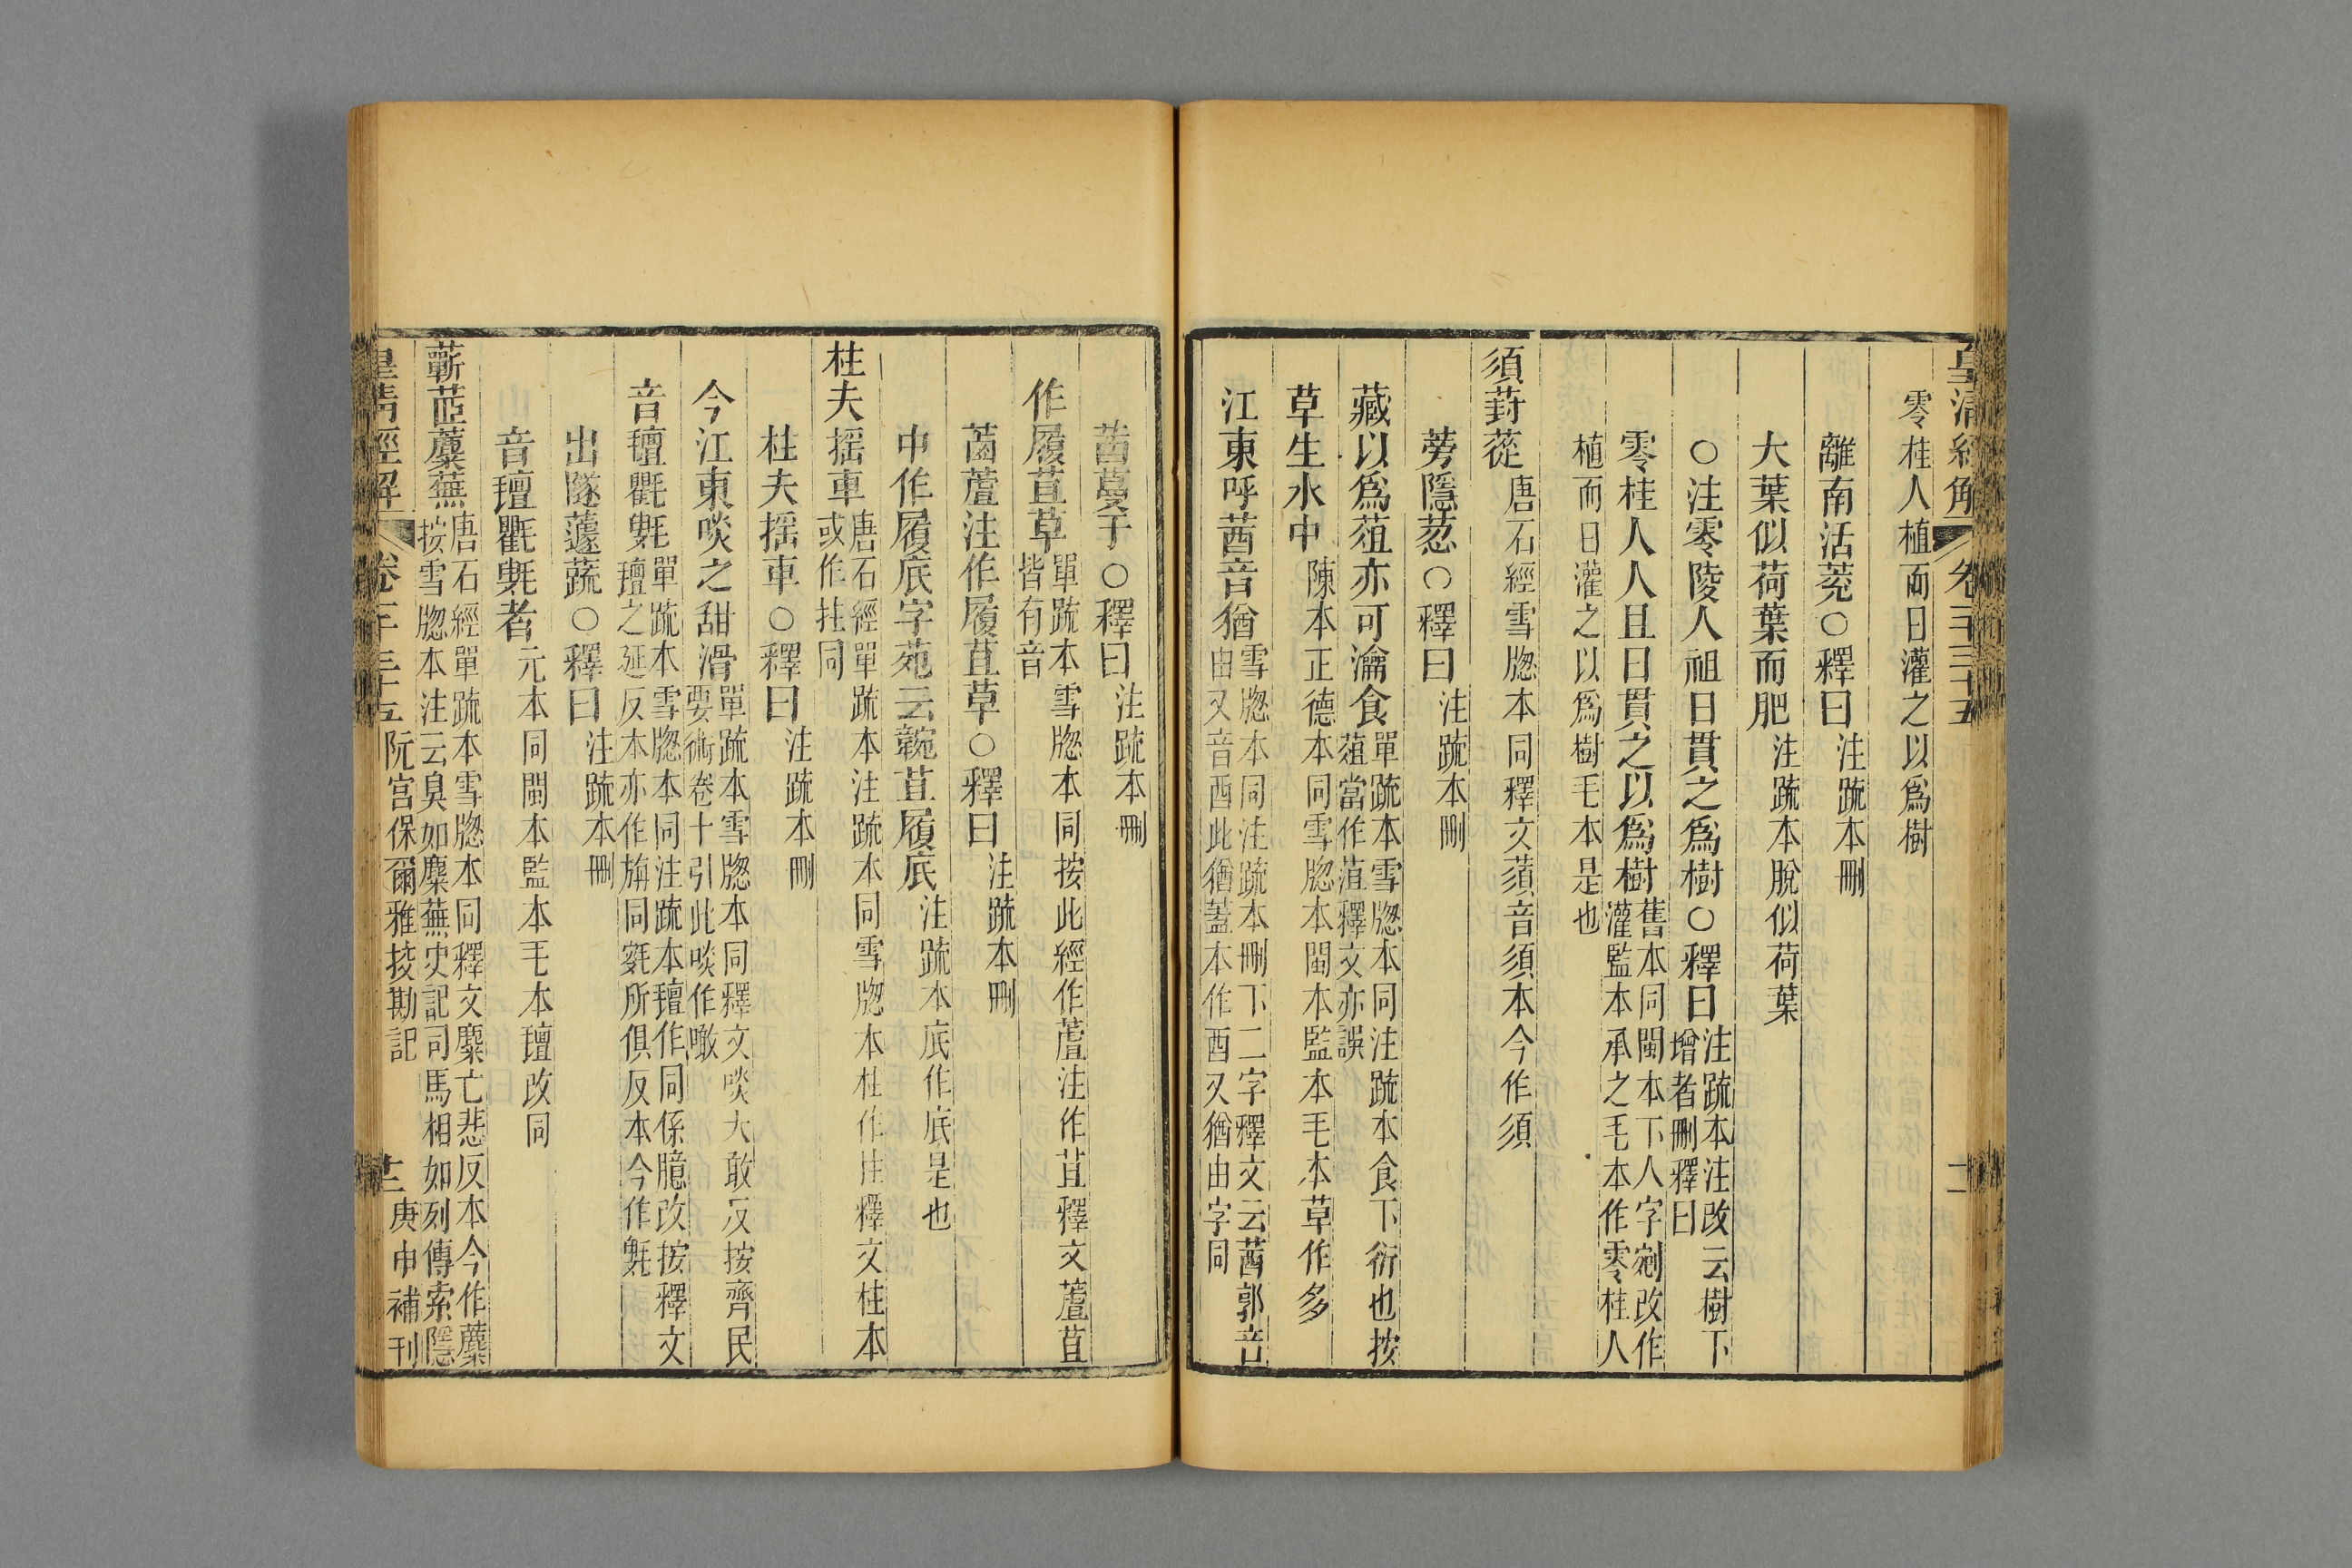 皇清經解 卷一千三十五 十二
零桂人植而日灌之以爲樹
離南活莌○釋曰注疏本刪
大葉似荷葉而肥注疏本脫似荷葉
○注零陵人祖日貫之爲樹○釋曰注疏本注改云樹下
增者刪釋曰
零桂人人且日貫之以爲樹舊本同閩本下人字剜改作
灌監本承之毛本作零桂人
植而日灌之以爲樹毛本是也
須葑蓯唐石經雪牕本同釋文蕦音須本今作須
蒡隱葱○釋曰注疏本刪
藏以爲蒩亦可瀹食單疏本雪牕本同注疏本食下衍也按
蒩當作菹釋文亦誤
草生水中陳本正德本同雪牕本閩本監本毛本草作多
江東呼茜音猶雪牕本同注疏本刪下二字釋文云茜郭音
由又音酉此猶蓋本作酉又猶由字同
茜蔓于○釋曰注疏本刪
作履苴草單疏本雪牕本同按此經作蔖注作苴釋文蔖苴
皆有音
菡蔖注作履苴草○釋曰注疏本刪
中作履底字苑云𩎺苴履底注疏本底作底是也
柱夫摇車唐石經單疏本注疏本同雪牕本杜作拄釋文柱本
或作拄同
柱夫摇車○釋曰注疏本刪
今江東啖之甜滑單疏本雪牕本同釋文啖大敢反按齊民
要術卷十引此啖作噉
音氊氍㲣單疏本雪牕本同注疏本氊作同係臆改按釋文
氊之延反本亦作旃同㲣所俱反本今作㲣
出隧蘧蔬○釋曰注疏本刪
音氊氍㲣者元本同閩本監本毛本氊改同
蘄茝蘪蕪唐石經單疏本雪牕本同釋文麋亡悲反本今作蘪
按雪牕本注云臭如麋蕪史記司馬相如列傳索隱
皇清經解 卷一千三十五 阮宮保爾雅挍勘記 十二 庚申補刊